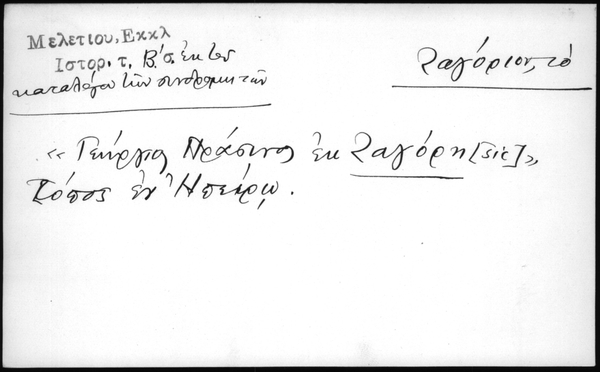 Μελετίου, Εκκλ
Ιστορ. τ. Β΄ σ. ἐκ τοῦ
καταλόγου τῶν συνδρομητῶν
Ζαγόριον, τὸ
«Γεώργιος Πράσινος ἐκ Ζαγόρη [sic]»,
Τόπος ἐν Ἠπείρῳ.